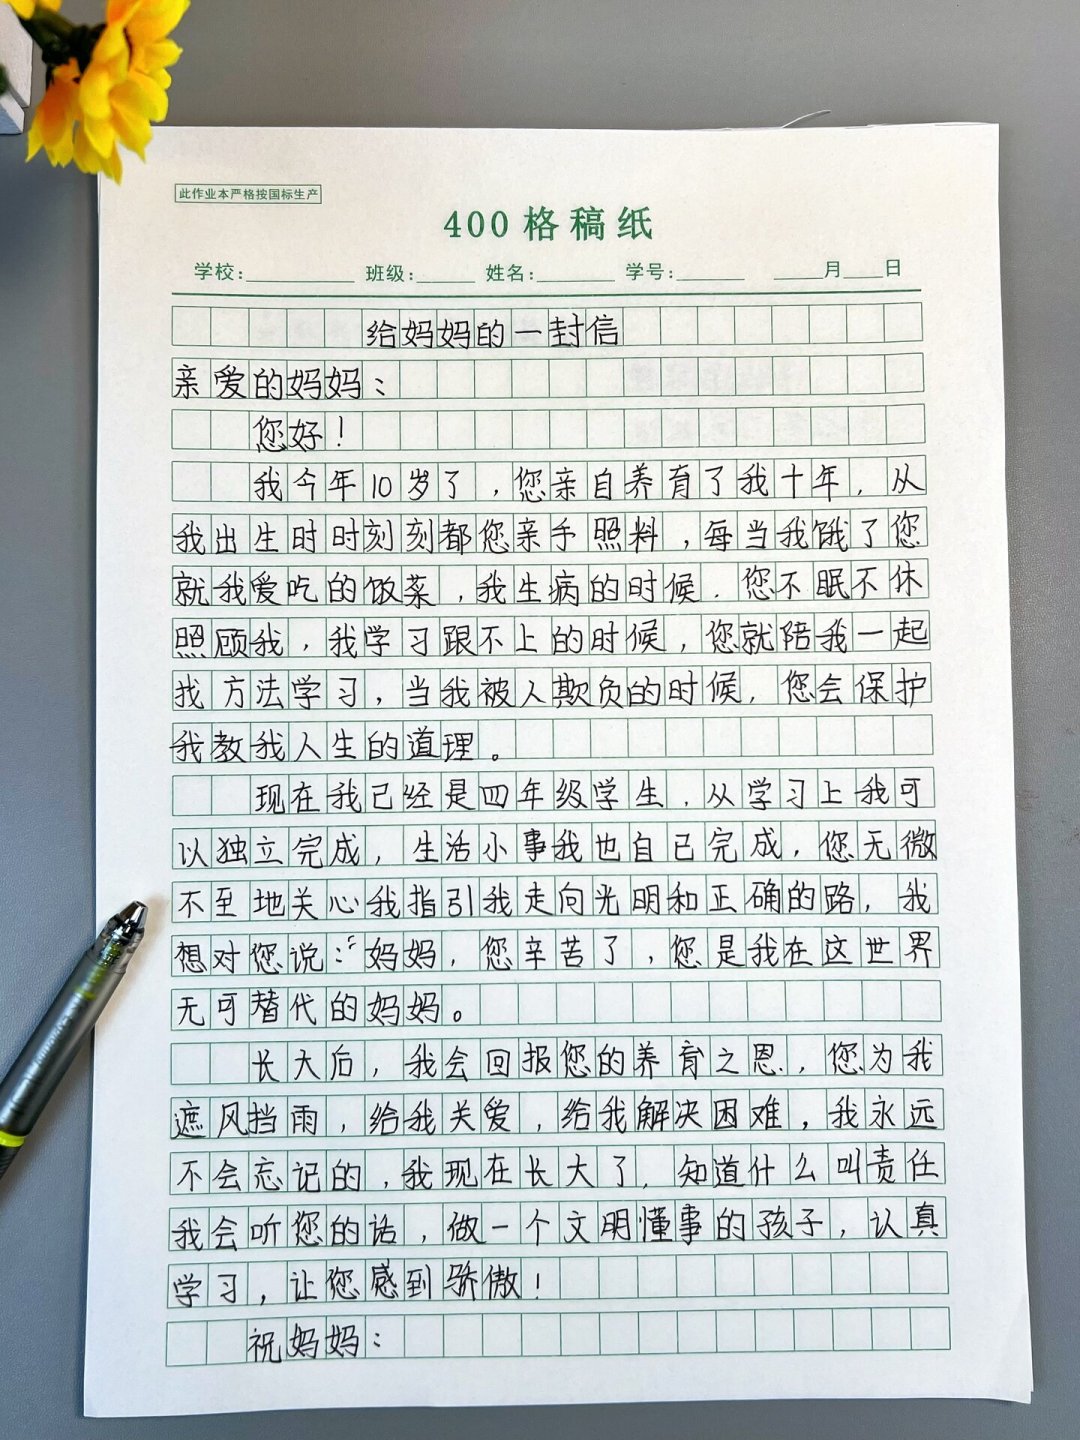 此作业本严格按国标生产
400格稿纸
学校： 班级： 姓名： 学号： 月 日
给妈妈的一封信
亲爱的妈妈：
您好！
我今年10岁了，您亲自养育了我十年，从
我出生时时刻刻都您亲手照料，每当我饿了您
就我爱吃的饭菜，我生病的时候．您不眠不休
照顾我，我学习跟不上的时候，您就陪我一起
找方法学习，当我被人欺负的时候，您会保护
我教我人生的道理。
现在我已经是四年级学生，从学习上我可
以独立完成，生活小事我也自已完成，您无微
不至地关心我指引我走向光明和正确的路，我
想对您说：“妈妈，您辛苦了，您是我在这世界
无可替代的妈妈。
长大后，我会回报您的养育之恩，您为我
遮风挡雨，给我关爱，给我解决困难，我永远
不会忘记的，我现在长大了，知道什么叫责任
我会听您的话，做一个文明懂事的孩子，认真
学习，让您感到骄傲！
祝妈妈：